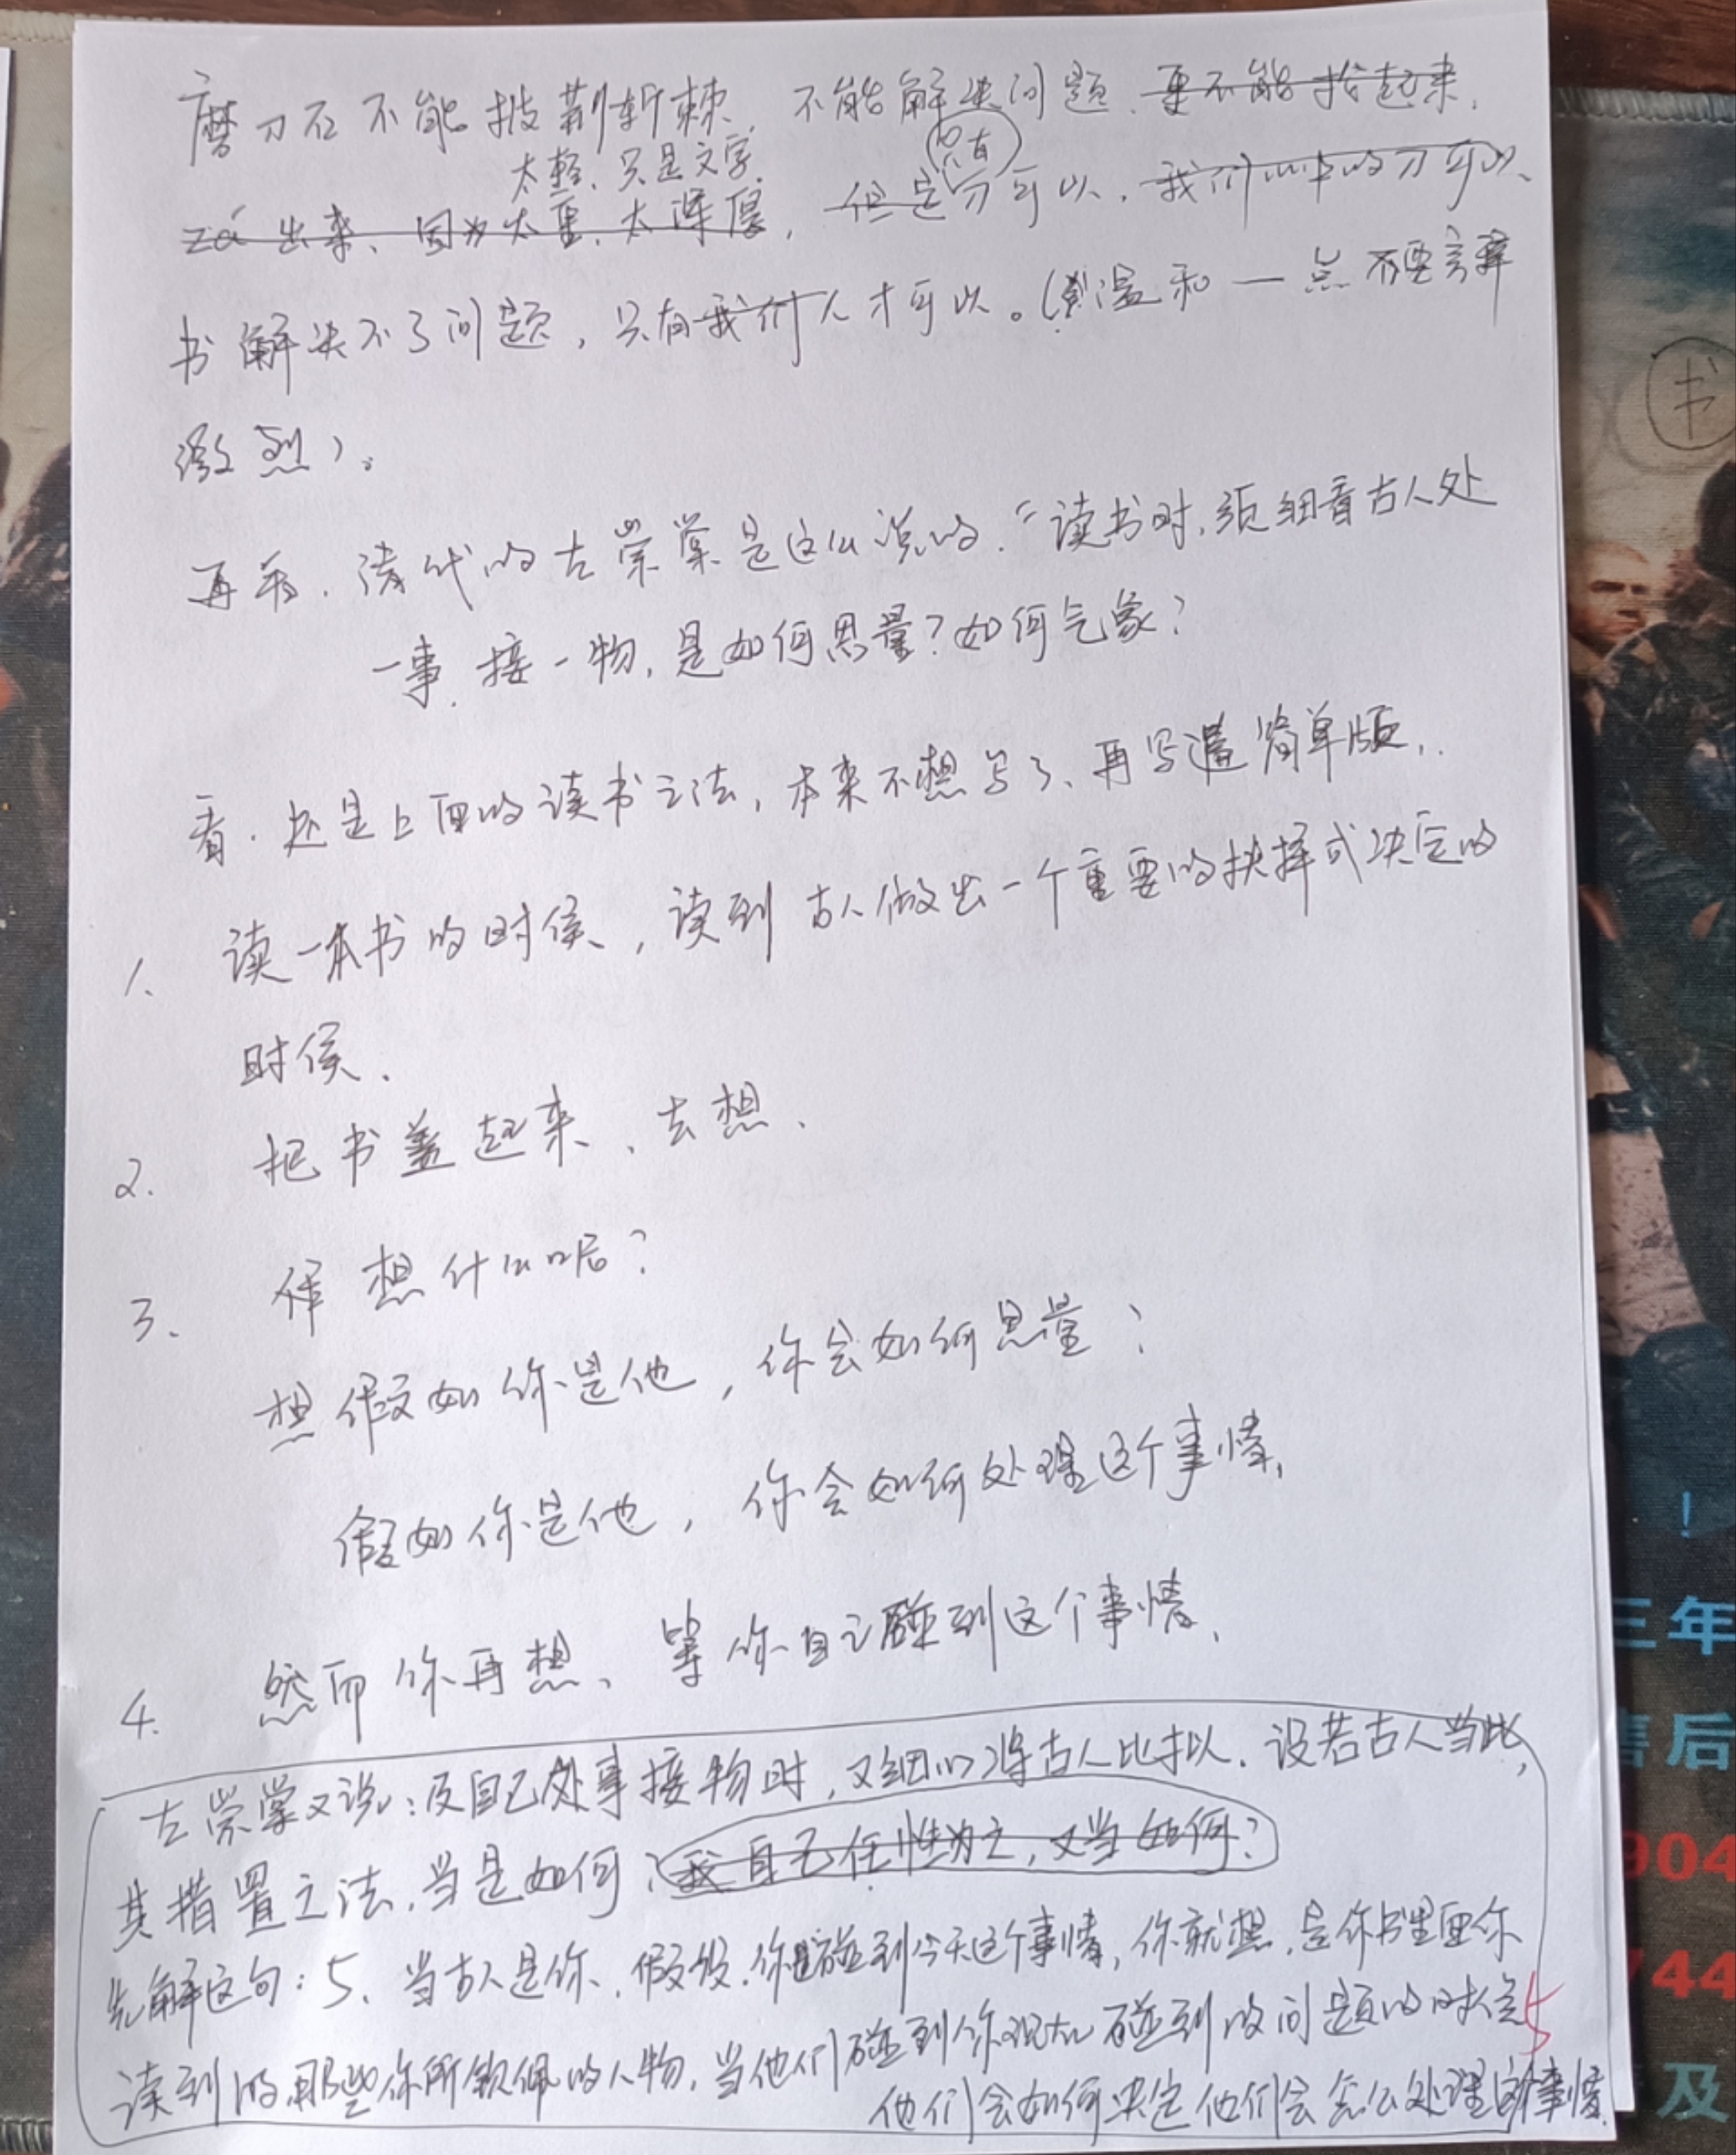 磨刀石不能披荆斩棘、不能解决问题、更不能拾起来,
太轻、只是文字,
只有
zá出来、因为太重、太浑厚,但是刀可以,我们心中的刀可以、
书解决不了问题,只有我们人才可以。(温和一点 不要言辞
激烈)。
再看、清代的左崇棠是这么说的、“读书时,须细看古人处
一事、接一物,是如何思量?如何气象?
看、还是上面的读书之法,本来不想写了、再写遍简单版,
1、读一本书的时候、,读到古人做出一个重要的抉择或决定的
时候、
2、把书盖起来、去想、
3、想什么呢?
想假如你是他,你会如何思量?
假如你是他,你会如何处理这个事情,
4、然而你再想、等你自己碰到这个事情、
左崇棠又说:及自己处事接物时,又细心将古人比拟、设若古人当此,
其措置之法,当是如何?我自己任性为之,又当如何?
先解这句:5、当古人是你、假设、你碰到今天这个事情,你就想,是你书里面你
读到的,那些你所钦佩的人物,当他们碰到你现在碰到的问题的时候
5
他们会如何决定他们会怎么处理这个事情
书
!
三年
售后
904
744
及